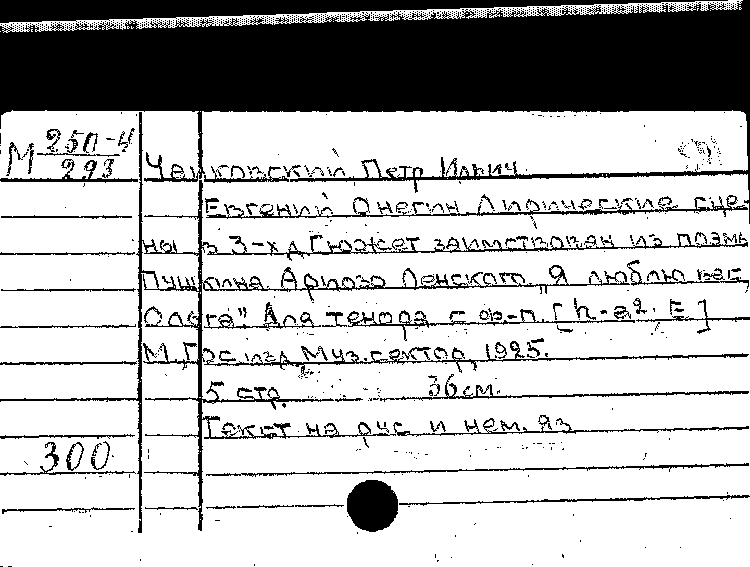 М 25П-4
293
Чайковский, Петр Ильич.
Евгений Онегин. Лирические сце-
ны в 3-х д. Сюжет заимствован из поэмы
Пушкина. Ариозо Ленского „Я люблю вас,
Ольга". Для тенора с ф-п. [h-a². E]
М., Гос. изд. Муз. сектор, 1925.
5 стр. 36 см.
Текст на рус. и нем. яз.
300